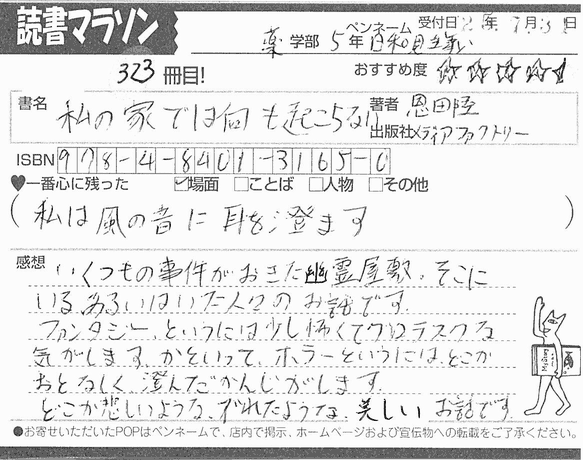 読書マラソン
ペンネーム 受付日 年 月 日
薬 学部 5年 日和見
323 冊目!
おすすめ度 ☆☆☆☆☆
書名 私の家では何も起こらない
著者 恩田陸
出版社 メディアファクトリー
ISBN 978-4-8401-3165-0
♥一番心に残った ☑場面 □ことば □人物 □その他
(私は風の音に耳を澄ます)
感想 いくつもの事件がおきた幽霊屋敷。そこに
いる、あるいはいた人々のお話です。
ファンタジー、というには少し怖くてグロテスクな
気がします。かといって、ホラーというには、どこか
おとなしく、澄んだかんじがします。
どこか悲しいような、ずれたような、美しいお話です。
●お寄せいただいたPOPはペンネームで、店内で掲示、ホームページおよび宣伝物への転載をご了承ください。